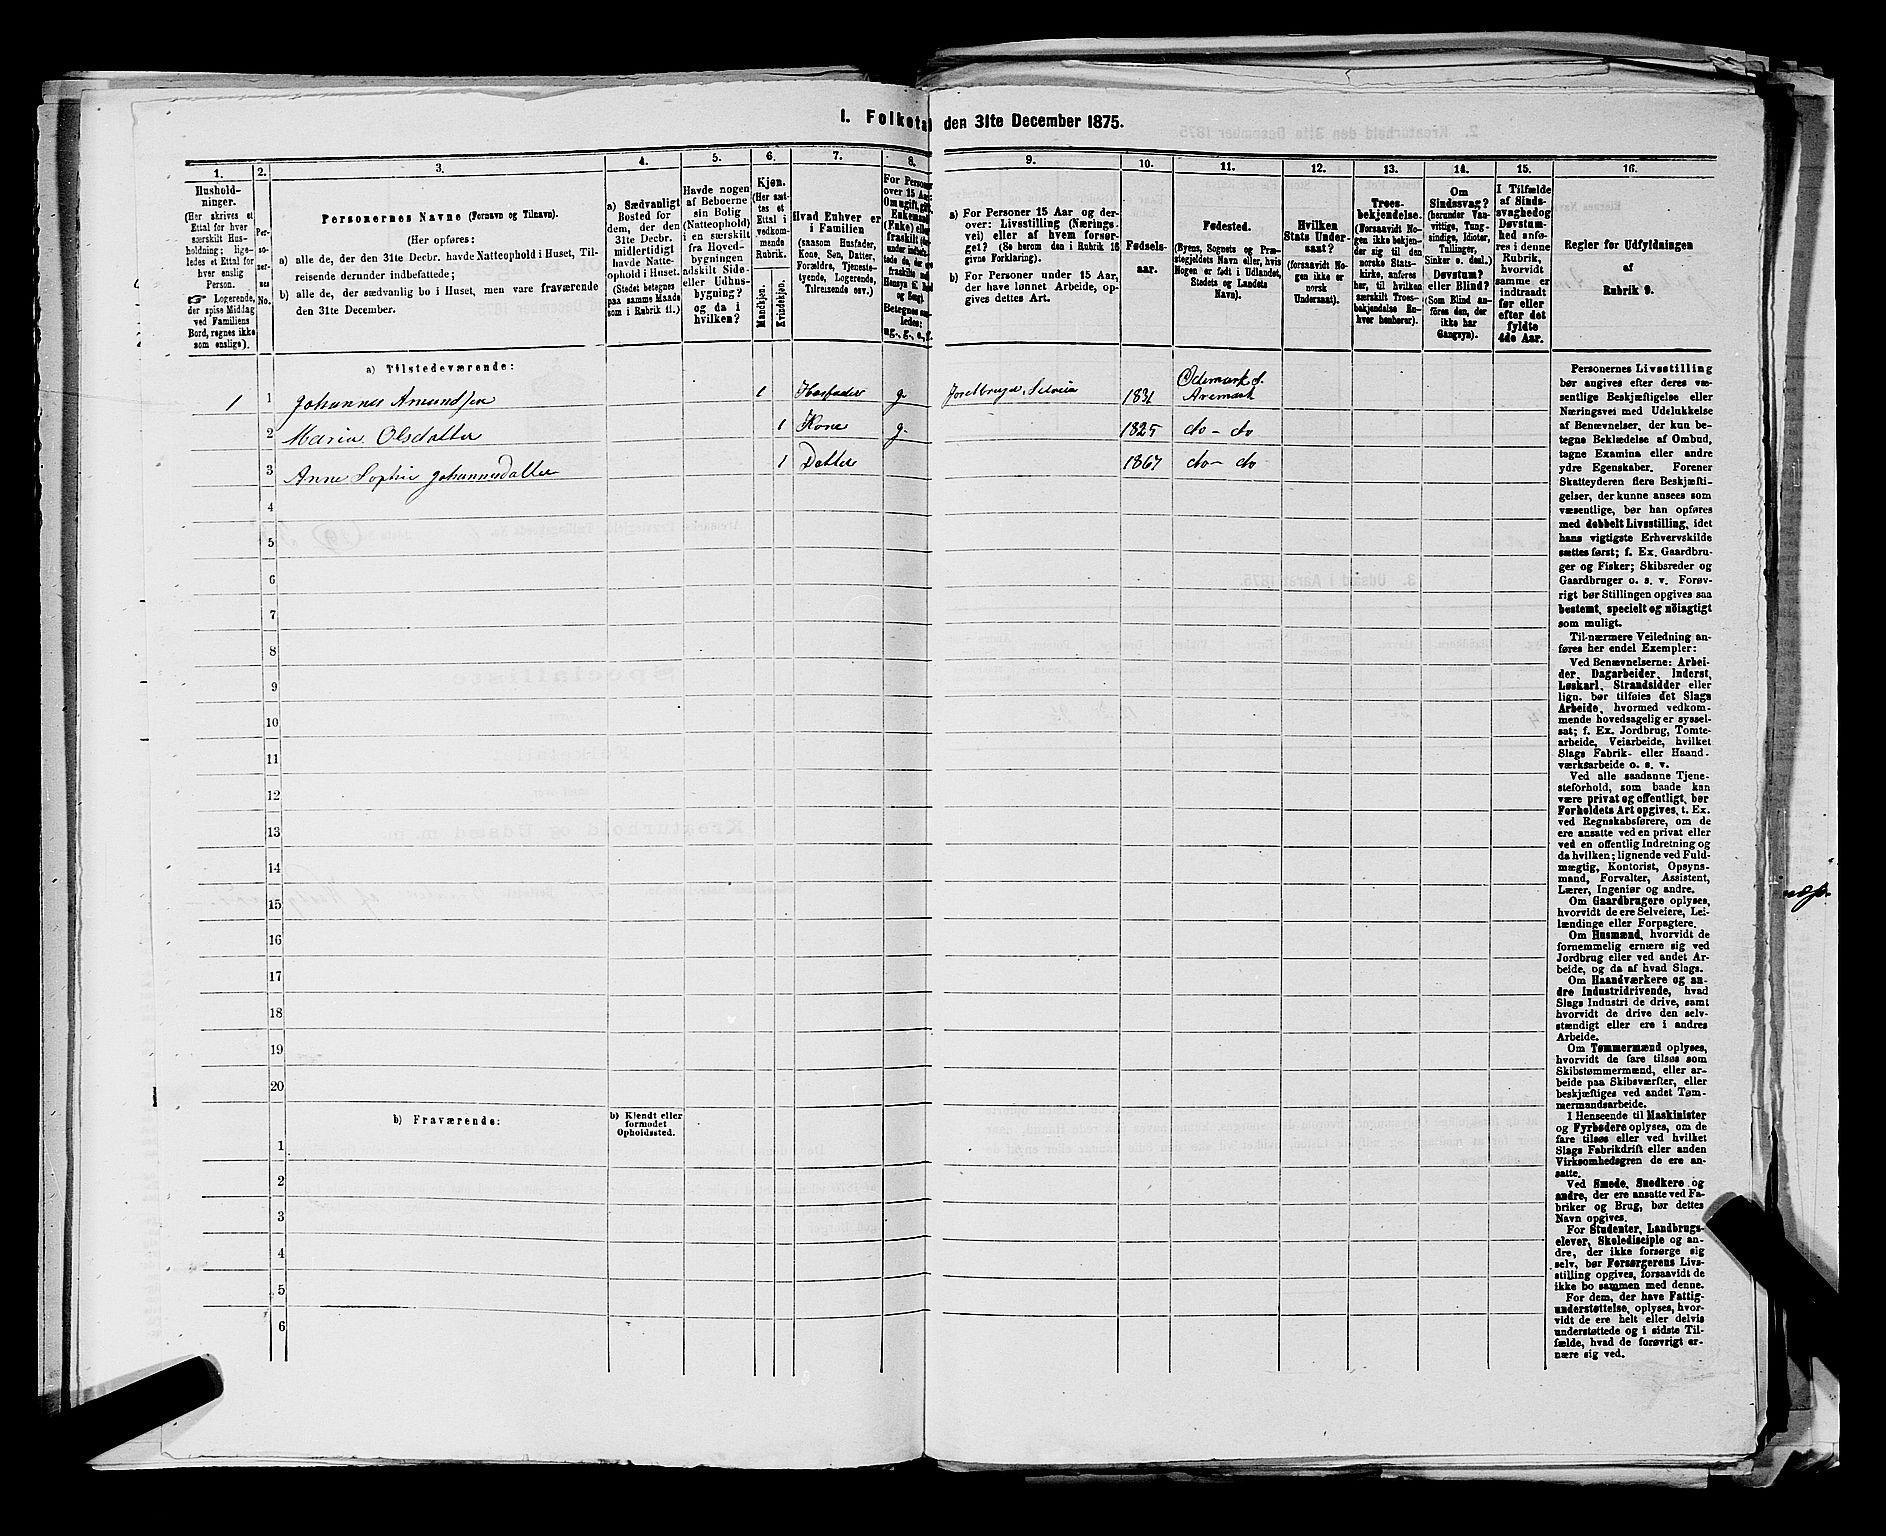 I. Folketal den 31te December 1875.
1.
Hushold-
ninger.
(Her skrives et
Ettal for hver
særskilt Hus-
holdning; lige-
ledes et Ettal for
hver enslig
Person.
☞ Logerende,
der spise Middag
ved Familiens
Bord, regnes ikke
som enslige).
2.
Per-
so-
ner-
nes
No.
3.
Personernes Navne (Fornavn og Tilnavn).
(Her opføres:
a) alle de, der den 31te Decbr. havde Natteophold i Huset, Til-
reisende derunder indbefattede;
b) alle de, der sædvanlig bo i Huset, men vare fraværende
den 31te December.
4.
a) Sædvanligt
Bosted for
dem, der den
31te Decbr.
midlertidigt
havde Natte-
ophold i Huset.
(Stedet betegnes
paa samme Maade
som i Rubrik 11.)
5.
Havde nogen
af Beboerne
sin Bolig
(Natteophold)
i en særskilt
fra Hoved-
bygningen
adskilt Side-
eller Udhus-
bygning?
og da i
hvilken?
6.
Kjøn.
(Her sæt-
tes et
Ettal i
vedkom-
mende
Rubrik.
Mandkjøn.
Kvindekjøn.
7.
Hvad Enhver er
i Familien
(saasom Husfader,
Kone, Søn, Datter,
Forældre, Tjeneste-
tyende, Logerende,
Tilreisende osv.)
8.
For Personer
over 15 Aar:
Om ugift, gift,
Enkemand
(Enke) eller
fraskilt
9.
a) For Personer 15 Aar og der-
over: Livsstilling (Nærings-
vei) eller af hvem forsør-
get? (Se herom den i Rubrik 16
givne Forklaring).
b) For Personer under 15 Aar,
der have lønnet Arbeide, op-
gives dettes Art.
10.
Fødsels-
aar.
11.
Fødested.
(Byens, Sognets og Præ-
stegjeldets Navn eller, hvis
Nogen er født i Udlandet,
Stedets og Landets
Navn).
12.
Hvilken
Stats Under-
saat?
(forsaavidt No-
gen ikke er
norsk
Undersaat).
13.
Troes-
bekjendelse.
(Forsaavidt No-
gen ikke bekjen-
der sig til den
norske Stats-
kirke, anføres
her, til hvilken
særskilt Troes-
bekjendelse En-
hver henhører).
14.
Om
Sindssvag?
(herunder Van-
vittige, Tung-
sindige, Idioter,
Tullinger,
Sinker o. desl.)
Døvstum?
eller Blind?
(Som Blind an-
føres den, der
ikke har
Gangsyn).
15.
I Tilfælde
af Sinds-
svaghed og
Døvstum-
hed anfø-
res i denne
Rubrik,
hvorvidt
samme er
indtraadt
før eller
efter det
fyldte
4de Aar.
16.
Regler for Udfyldningen
af
Rubrik 9.
a) Tilstedeværende:
1 1 Johannes Amundsen 1 Husfader g. Jordbrug, Selveier 1831 Ødemark S. Aremark
2 Maria Olsdatter 1 Kone g. 1825 do - do
3 Anne Sophie Johannesdatter 1 Datter 1867 do - do
4
5
6
7
8
9
10
11
12
13
14
15
16
17
18
19
20
b) Fraværende:
b) Kjendt eller
formodet
Opholdssted.
1
2
3
4
5
6
Personernes Livsstilling
bør angives efter deres væ-
sentlige Beskjæftigelse eller
Næringsvei med Udelukkelse
af Benævnelser, der kun be-
tegne Beklædelse af Ombud,
tagne Examina eller andre
ydre Egenskaber. Forener
Skatteyderen flere Beskjæfti-
gelser, der kunne ansees som
væsentlige, bør han opføres
med dobbelt Livsstilling, idet
hans vigtigste Erhvervskilde
sættes først; f. Ex. Gaardbru-
ger og Fisker; Skibsreder og
Gaardbruger o. s. v. Forøv-
rigt bør Stillingen opgives saa
bestemt, specielt og nøiagtigt
som muligt.
Til nærmere Veiledning an-
føres her endel Exempler:
Ved Benævnelserne: Arbei-
der, Dagarbeider, Inderst,
Løskarl, Strandsidder eller
lign. bør tilføies det Slags
Arbeide, hvormed vedkom-
mende hovedsagelig er syssel-
sat; f. Ex. Jordbrug, Tomte-
arbeide, Veiarbeide, hvilket
Slags Fabrik- eller Haand-
værksarbeide o. s. v.
Ved alle saadanne Tjene-
steforhold, som baade kan
være privat og offentligt, bør
Forholdets Art opgives, t. Ex.
ved Regnskabsførere, om de
ere ansatte ved en privat eller
ved en offentlig Indretning og
da hvilken; lignende ved Fuld-
mægtig, Kontorist, Opsyns-
mand, Forvalter, Assistent,
Lærer, Ingeniør og andre.
Om Gaardbrugere oplyses,
hvorvidt de ere Selveiere, Lei-
lændinge eller Forpagtere.
Om Husmænd, hvorvidt de
fornemmelig ernære sig ved
Jordbrug eller ved andet Ar-
beide, og da af hvad Slags.
Om Haandværkere og an-
dre Industridrivende, hvad
Slags Industri de drive, samt
hvorvidt de drive den selv-
stændigt eller ere i andres
Arbeide.
Om Tømmermænd oplyses,
hvorvidt de fare tilsøs som
Skibstømmermænd, eller ar-
beide paa Skibsværfter, eller
beskjæftiges ved andet Tøm-
mermandsarbeide.
I Henseende til Maskinister
og Fyrbødere oplyses, om de
fare tilsøs eller ved hvilket
Slags Fabrikdrift eller anden
Virksomhedsgren de ere an-
satte.
Ved Smede, Snedkere og
andre, der ere ansatte ved Fa-
briker og Brug, bør dettes
Navn opgives.
For Studenter, Landbrugs-
elever, Skoledisciple og an-
dre, der ikke forsørge sig
selv, bør Forsørgerens Livs-
stilling opgives, forsaavidt de
ikke bo sammen med denne.
For dem, der have Fattig-
understøttelse, oplyses, hvor-
vidt de ere helt eller delvis
understøttede og i sidste Til-
fælde, hvad de forøvrigt er-
nære sig ved.